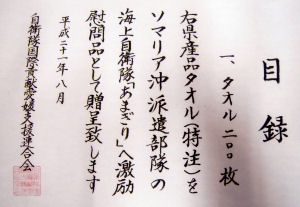 目録
一、タオル 二〇〇枚
右県産品タオル(特注)を
ソマリア沖派遣部隊の
海上自衛隊「あまぎり」へ激励
慰問品として贈呈致します
平成二十一年八月
自衛隊国際貢献愛媛支援連合会